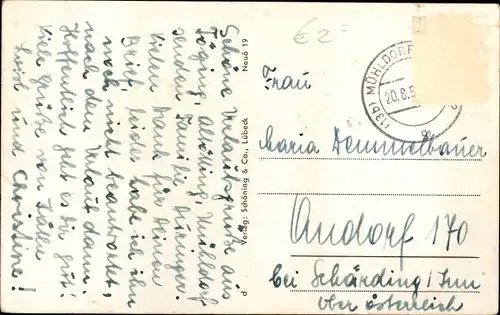 Schöne Urlaubsgrüße aus
Töging, Altötting, Mühldorf
senden Familie
Vielen Dank für Deinen
Brief, leider habe ich ihn
noch nicht beantwortet,
nach dem Urlaub dann.
Hoffentlich geht es Dir gut!
Viele Grüße von
und Christine!
d
Verlag: Schöning & Co., Lübeck
Neuö 19
€ 2
(13b) MÜHLDORF
20.8.5
Frau
Maria Demmelbauer
Andorf 170
bei Schärding/Inn
Oberösterreich